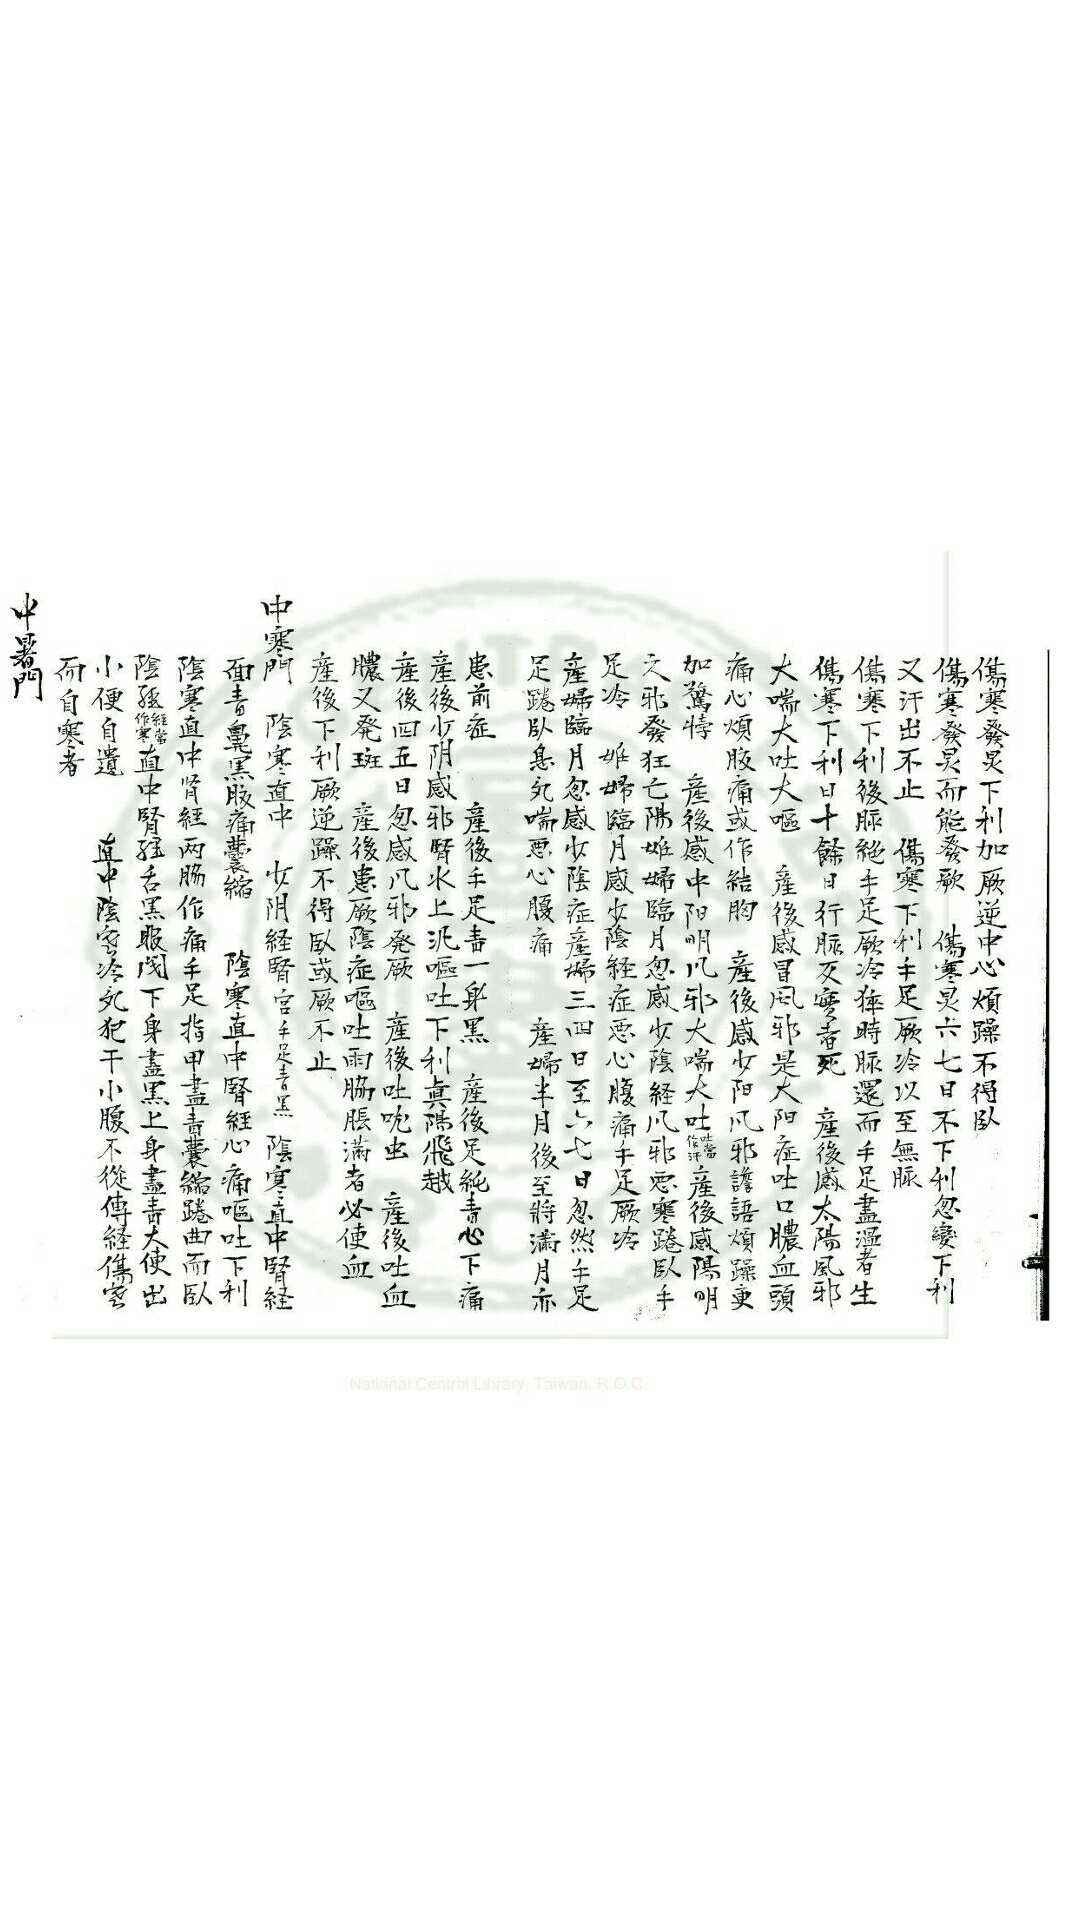 傷寒發炅下利加厥逆中心煩躁不得臥
傷寒發炅而能發厥　傷寒炅六七日不下利忽變下利
又汗出不止　傷寒下利手足厥冷以至無脈
傷寒下利後脈絕手足厥冷猝時脈還而手足盡溫者生
傷寒下利日十餘日行脈反實者死　產後感太陽風邪
大喘大吐大嘔　產後感冒風邪是大阳症吐口膿血頭
痛心煩腹痛或作結胸　產後感少阳凨邪譫語煩躁更
加驚悸　產後感中阳明凨邪大喘大吐吐當作汗產後感陽明
之邪發狂亡陽姙婦臨月忽感少陰経凨邪悪寒踡臥手
足冷　姙婦臨月感少陰経症悪心腹痛手足厥冷
產婦臨月忽感少陰症產婦三四日至六七日忽然手足
足踡臥息気喘悪心腹痛　產婦半月後至將滿月亦
患前症　產後手足青一身黑　產後足純青心下痛
產後少阴感邪腎水上泛嘔吐下利眞陽飛越
產後四五日忽感凨邪発厥　產後吐蚘出　產後吐血
膿又発斑　產後患厥陰症嘔吐兩脇脹滿者必便血
產後下利厥逆躁不得臥或厥不止
中寒門　陰寒直中　少阴経腎宮手足青黑　陰寒直中腎経
面青鼻黑腹痛囊縮　陰寒直中腎経心痛嘔吐下利
陰寒直中肾経两肠作痛手足指甲盡青囊縮踡曲而臥
陰経経當作寒直中腎経舌黑眼閉下身盡黑上身盡青大便出
小便自遺　直中陰寒冷気犯干小腹不從傳経傷寒
而自寒者
中暑門
National Central Library, Taiwan, R.O.C.